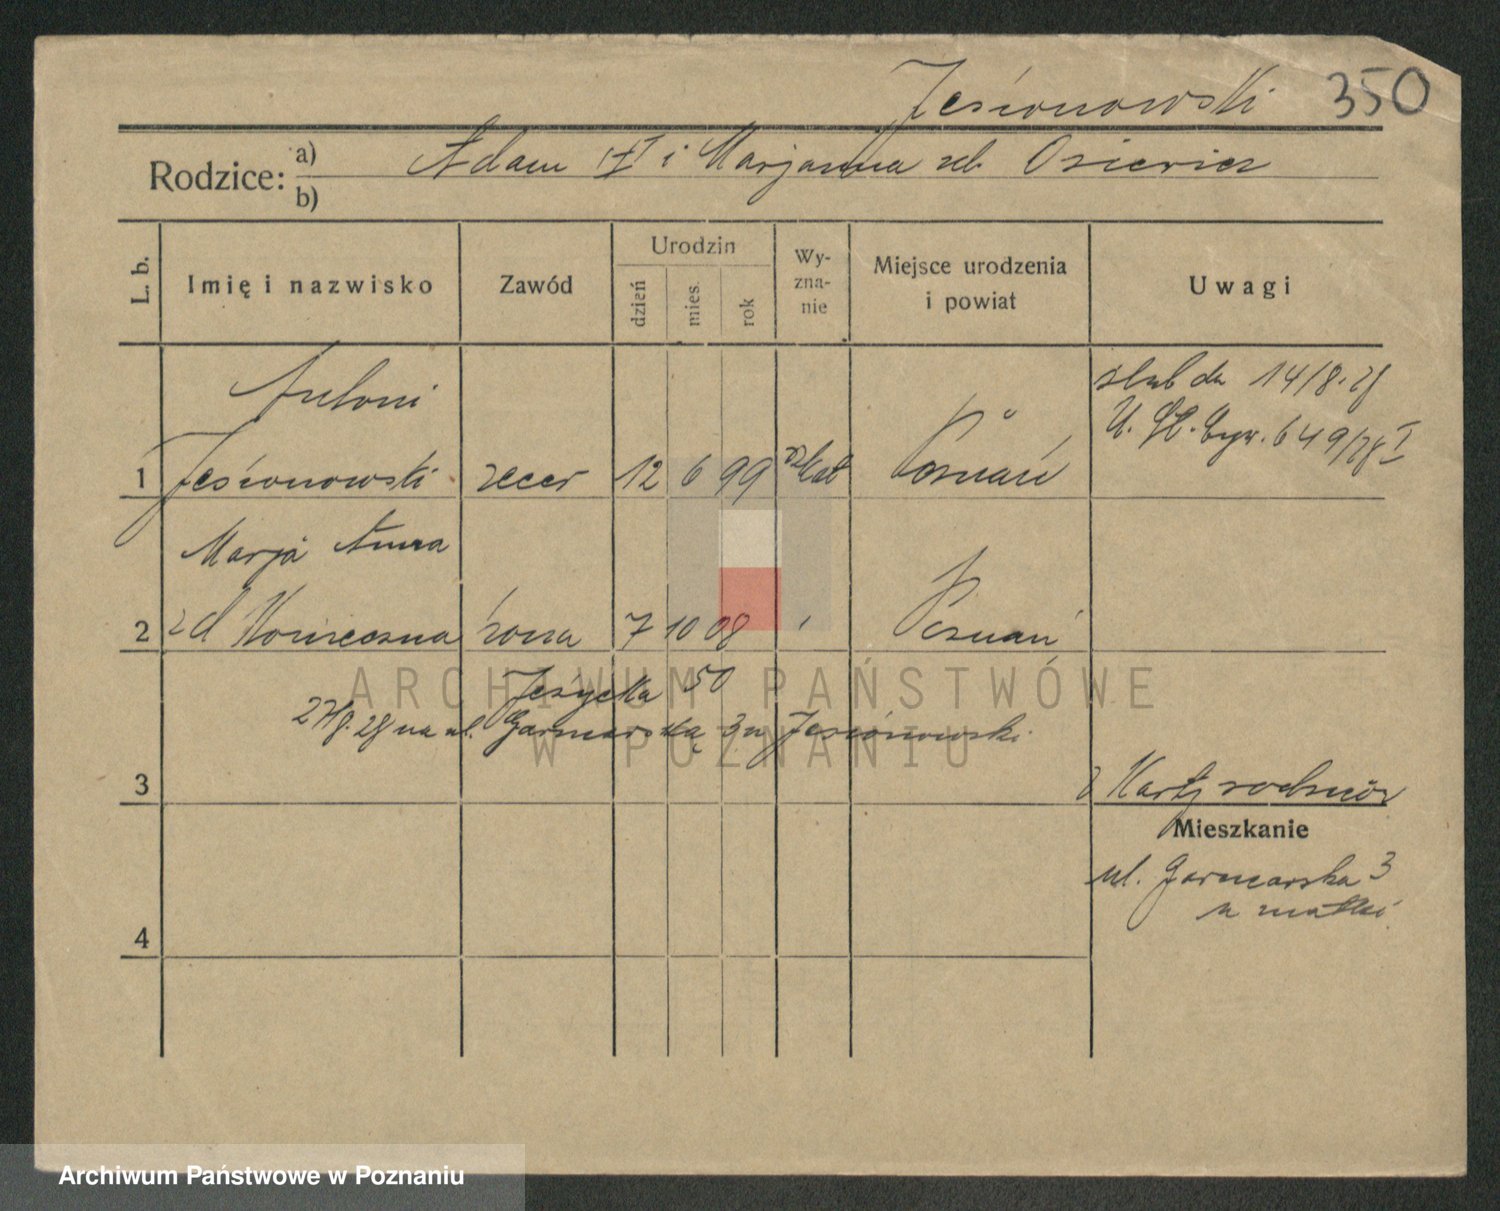 Jesionowski 350
Rodzice: a) Adam i Marjanna Osiewicz
b)
L. b.
Imię i nazwisko
Zawód
Urodzin
dzień
mies.
rok
Wy-
zna-
nie
Miejsce urodzenia
i powiat
Uwagi
Antoni
1 Jesionowski zecer 12 6 99 rz kat Poznań
ślub dn 14/8. 28
649/28 I
Marja Anna
2 zd Konieczna żona 7 10 08 Poznań
Jeżycka 50
na ul. Garncarską 3 u Jesionowski
3
z Karty rodziców
Mieszkanie
ul. Garncarska 3
u matki
4
ARCHIWUM PAŃSTWOWE
W POZNANIU
Archiwum Państwowe w Poznaniu